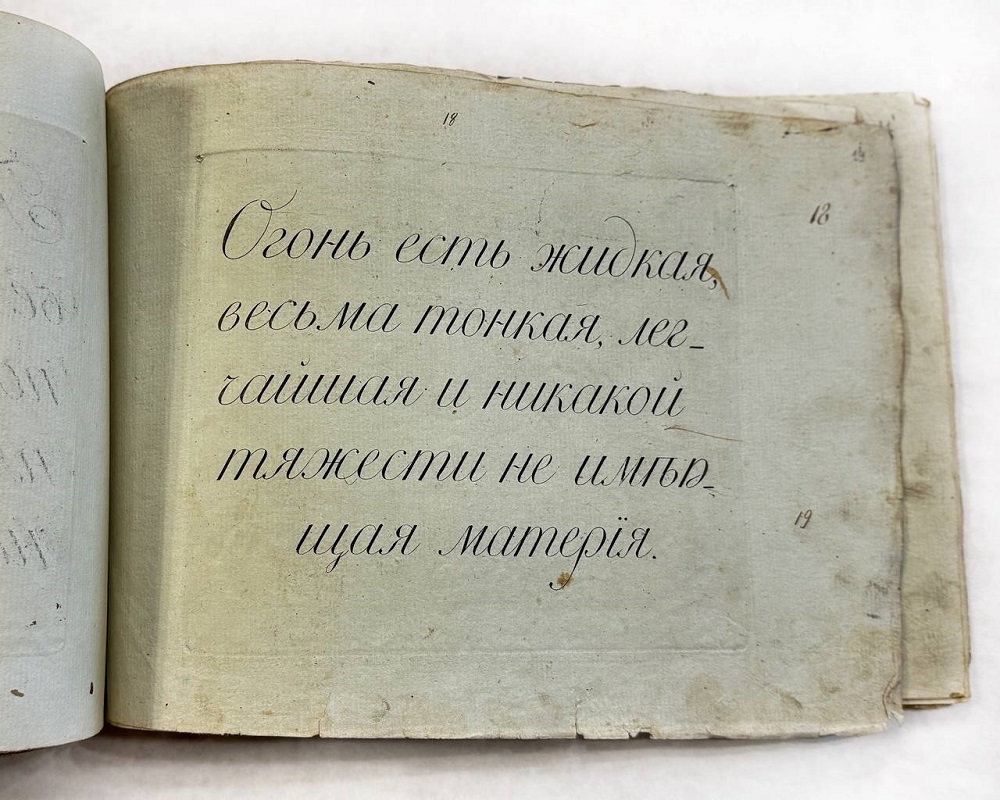 18
18
Огонь есть жидкая,
весьма тонкая, лег-
чайшая и никакой
тяжести не имѣю-
щая матерїя.
19